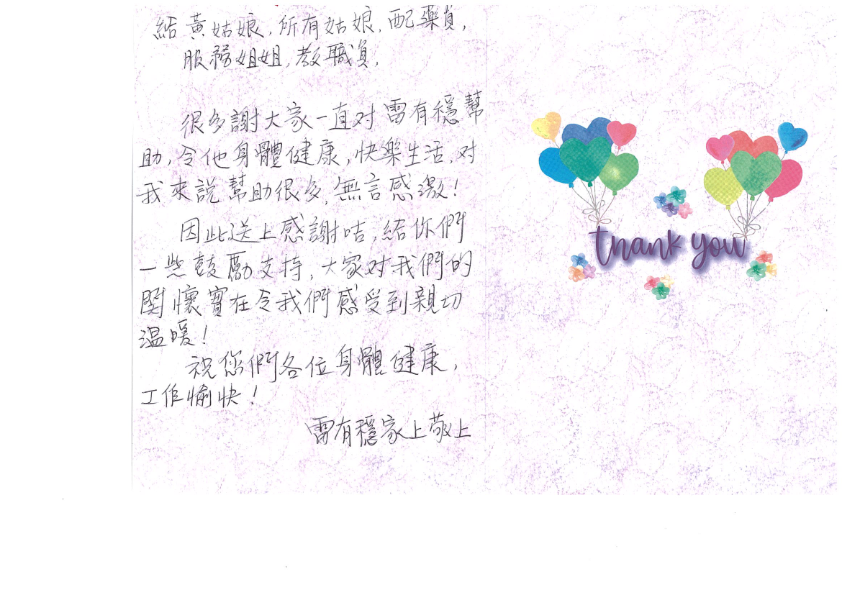 給黃姑娘,所有姑娘,配藥員,
服務姐姐,教職員,
很多謝大家一直对雷有穩幫
助,令他身體健康,快樂生活,对
我來說幫助很多,無言感激!
因此送上感謝咭,給你們
一些鼓勵支持,大家对我們的
関懷實在令我們感受到親切
溫暖!
祝您們各位身體健康,
工作愉快!
雷有穩家上敬上
thank you